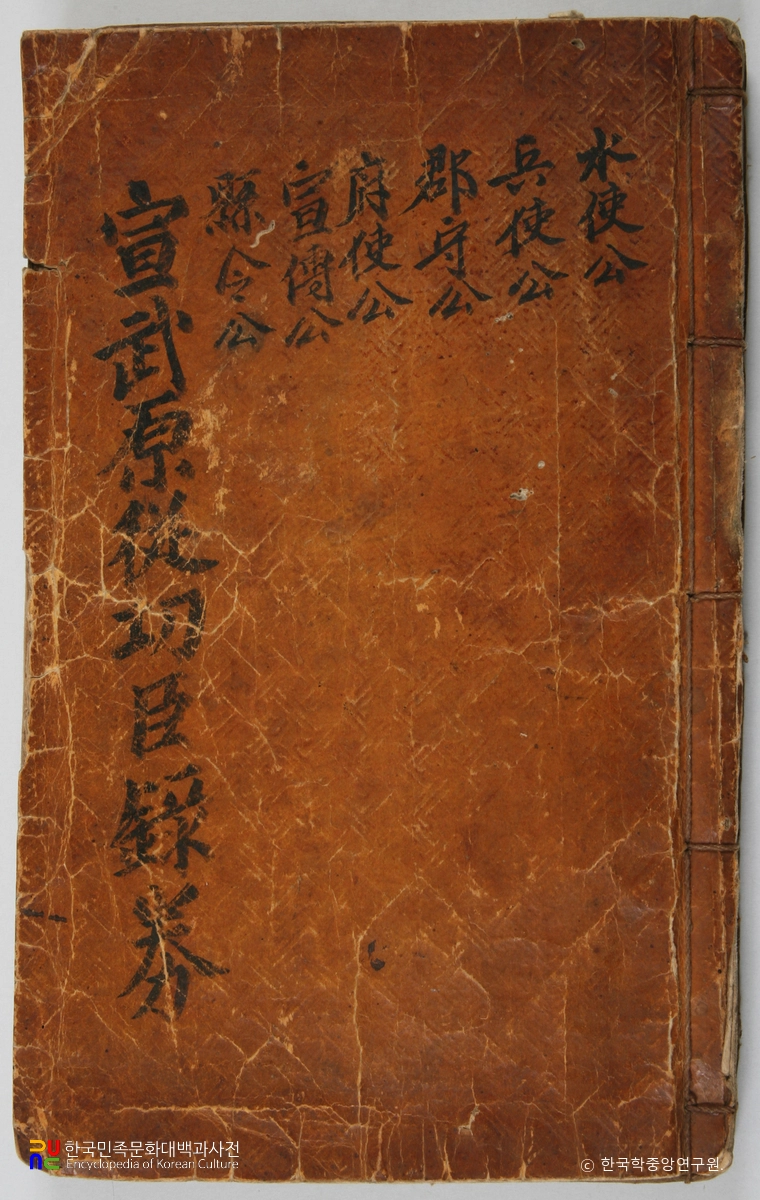 水使公
兵使公
郡守公
府使公
宣傳公
縣令公
宣武原從功臣錄券
한국민족문화대백과사전
Encyclopedia of Korean Culture
© 한국학중앙연구원